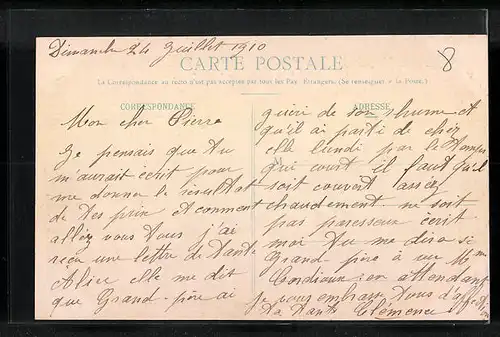 Dimanche 24 Juillet 1910
8
CARTE POSTALE
La Correspondance au recto n'est pas acceptée par tous les Pays Etrangers. (Se renseigner à la Poste.)
CORRESPONDANCE
Mon cher Pierre
Je pensais que tu
m'aurait écrit pour
me donner le résultat
de tes prix et comment
allez vous tous j'ai
reçu une lettre de tante
Alice elle me dit
que Grand-père ai
ADRESSE
guéri de son rhume et
qu'il ai parti de chez
elle lundi par le temps
qui court il faut qu'il
soit couvert assez
chaudement ne soit
pas paresseux écrit
moi tu me dira si
Grand père à un
Cordiaux en attendant
je vous embrasse tous d'affection
ta tante Clémence